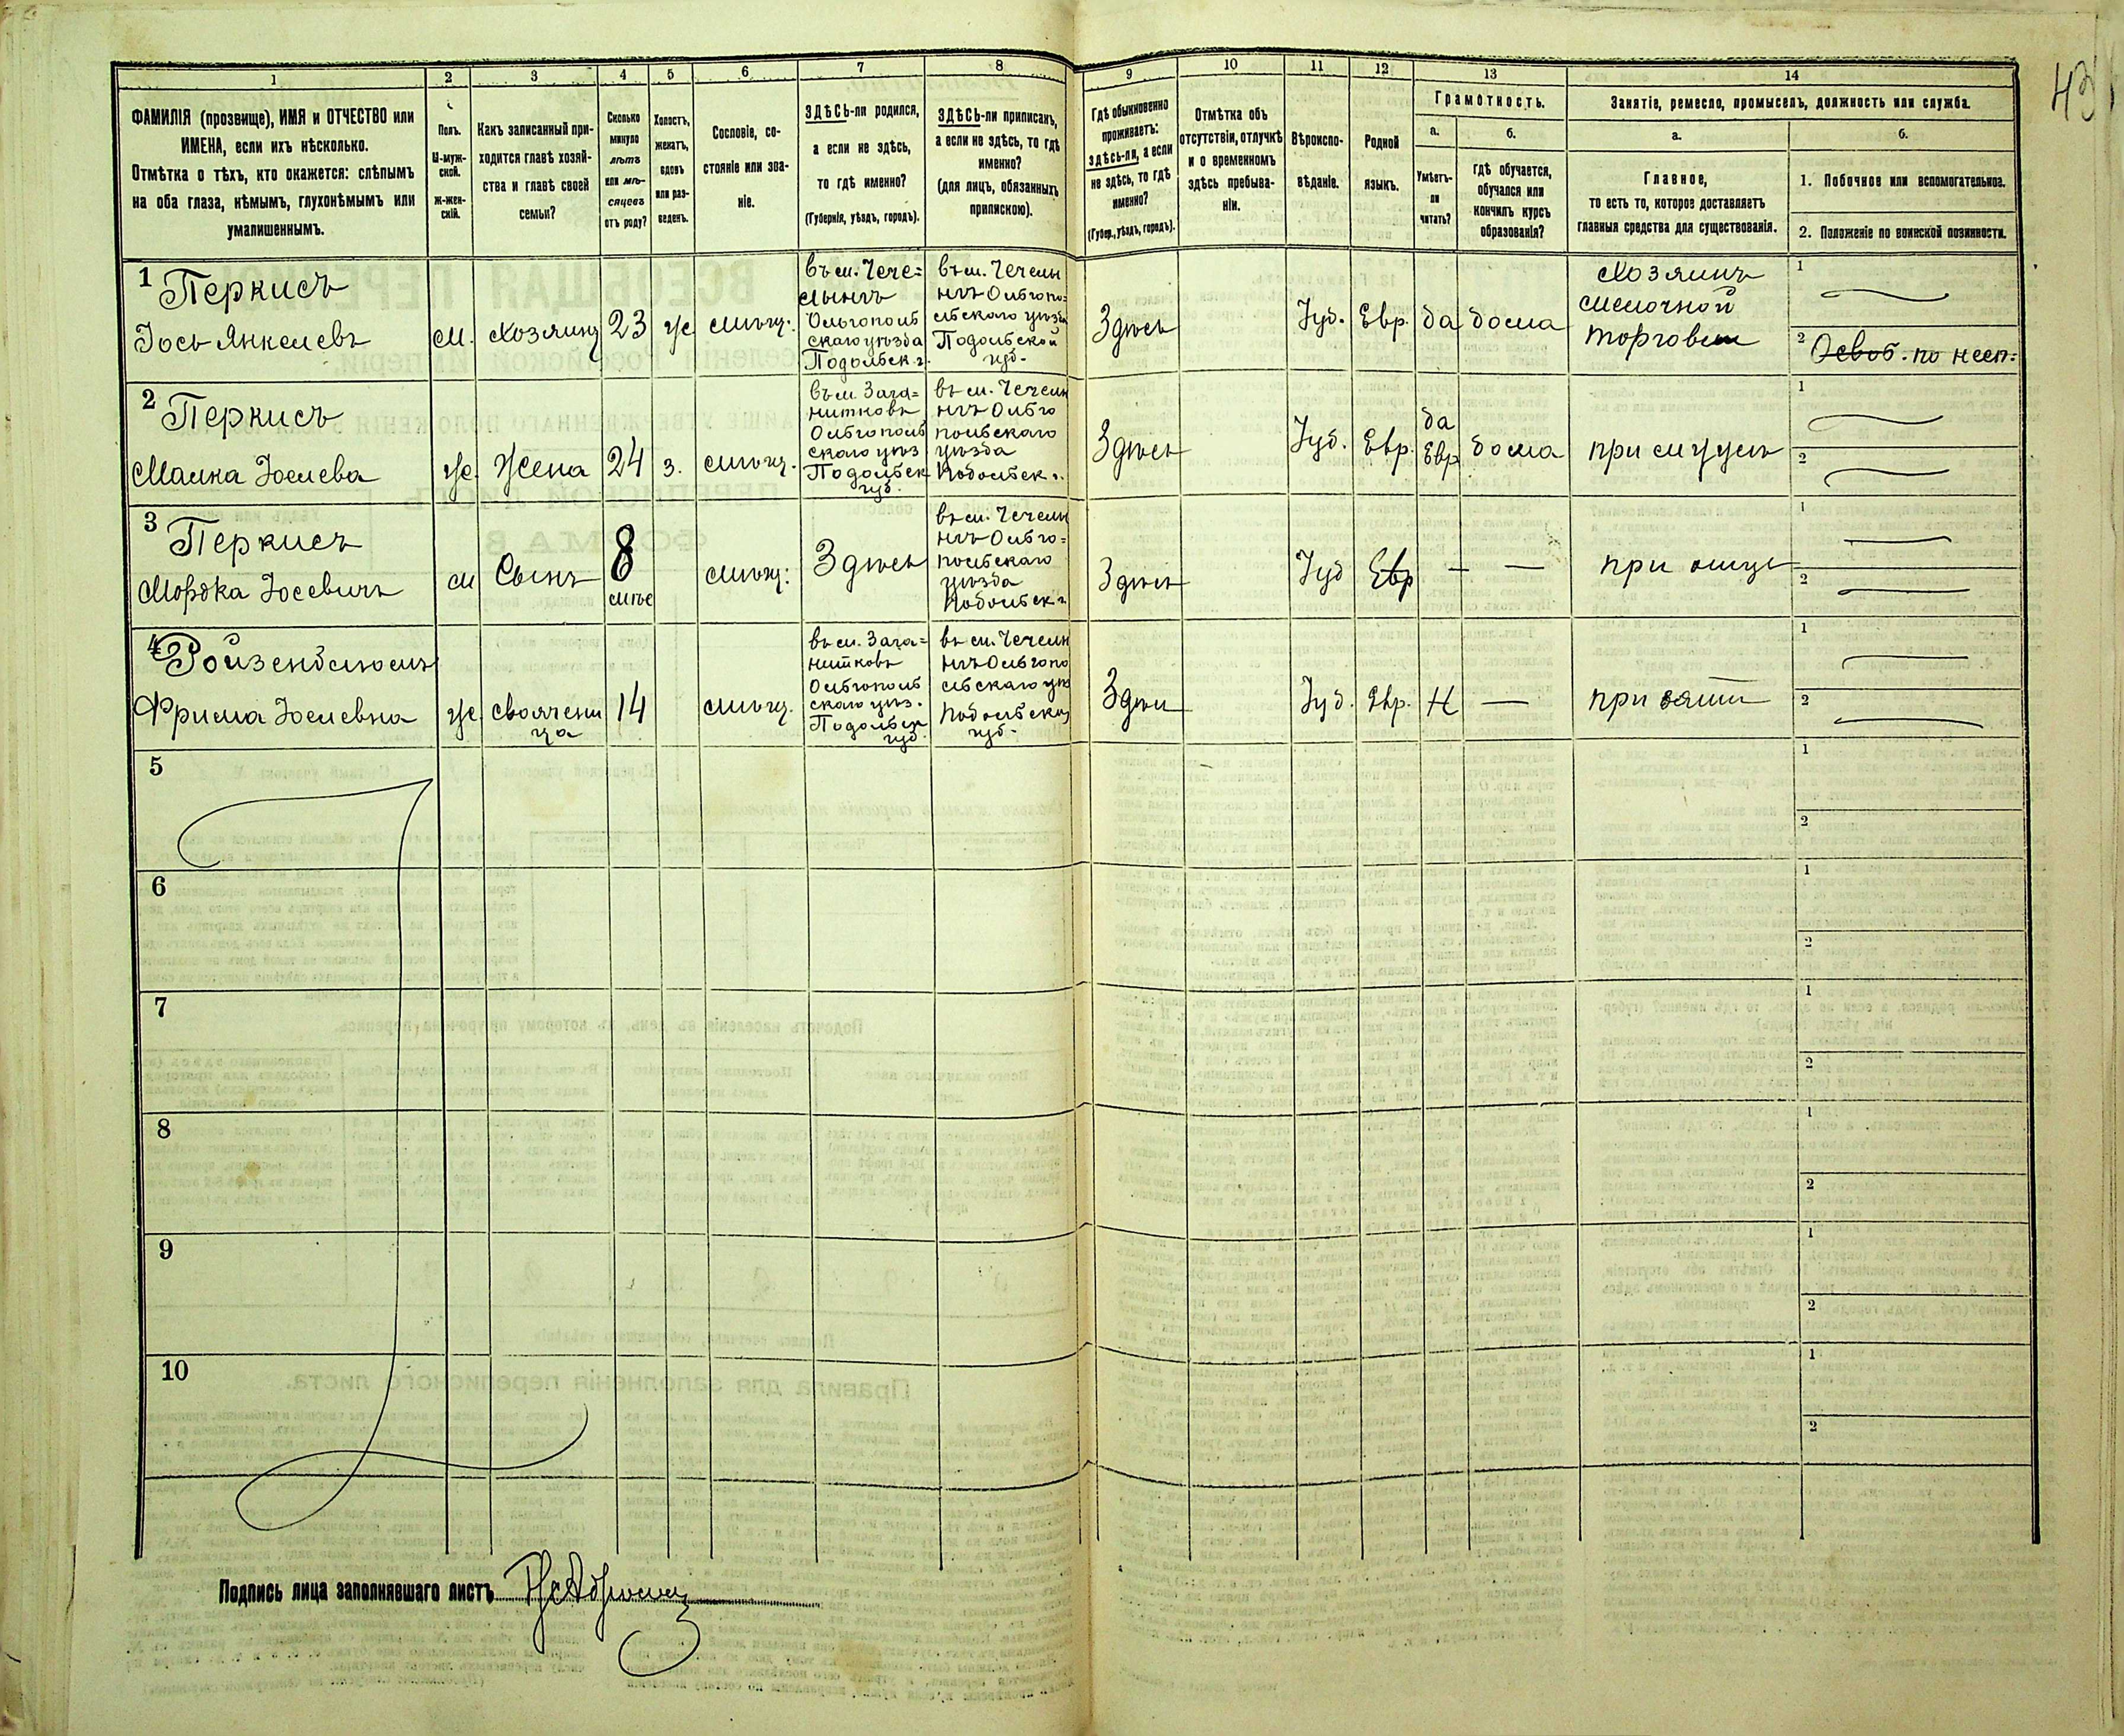 43
1 2 3 4 5 6 7 8 9 10 11 12 13 14
ФАМИЛІЯ (прозвище), ИМЯ и ОТЧЕСТВО или
ИМЕНА, если ихъ нѣсколько.
Отмѣтка о тѣхъ, кто окажется: слѣпымъ
на оба глаза, нѣмымъ, глухонѣмымъ или
умалишеннымъ.
Полъ.
М-муж-
ской.
ж-жен-
скій.
Какъ записанный при-
ходится главѣ хозяй-
ства и главѣ своей
семьи?
Сколько
минуло
лѣтъ
или мѣ-
сяцевъ
отъ роду?
Холостъ,
женатъ,
вдовъ
или раз-
веденъ.
Сословіе, со-
стояніе или зва-
ніе.
ЗДѢСЬ-ли родился,
а если не здѣсь,
то гдѣ именно?
(Губернія, уѣздъ, городъ).
ЗДѢСЬ-ли приписанъ,
а если не здѣсь, то гдѣ
именно?
(для лицъ, обязанныхъ
припискою).
Гдѣ обыкновенно
проживаетъ:
здѣсь-ли, а если
не здѣсь, то гдѣ
именно?
(Губер., уѣздъ, городъ).
Отмѣтка объ
отсутствіи, отлучкѣ
и о временномъ
здѣсь пребыва-
ніи.
Вѣроиспо-
вѣданіе.
Родной
языкъ.
Грамотность.
а.
Умѣетъ-
ли
читать?
б.
гдѣ обучается,
обучался или
кончилъ курсъ
образованія?
Занятіе, ремесло, промыселъ, должность или служба.
а.
Главное,
то есть то, которое доставляетъ
главныя средства для существованія.
б.
1. Побочное или вспомогательное.
2. Положеніе по воинской повинности.
1 Перкисъ
Іось Янкелевъ
м.
хозяинъ
23
же
мѣщ.
въ м. Чече=
льникъ
Ольгополь
скаго уѣзда
Подольск. г.
въ м. Чечель
никъ Ольгопо=
льскаго уѣзда
Подольской
губ.
Здѣсь
Іуд.
Евр.
да
дома
Хозяинъ
мелочной
торговли
1
2 Освоб. по несп=
2 Перкисъ
Малка Іосиева
же.
Жена
24
з.
мѣщ.
въ м. Зага=
нитковѣ
Ольгополь
скаго уѣз
Подольск
губ.
въ м. Чечель
никъ Ольго
польскаго
уѣзда
Подольск г.
Здѣсь
Іуд.
Евр.
да
Евр
дома
при мужѣ
1
2
3 Перкисъ
Мордка Іосевичъ
м
Сынъ
8
мѣс
мѣщ:
Здѣсь
въ м. Чечель
никъ Ольго=
польскаго
уѣзда
Подольск г.
Здѣсь
Іуд
Евр
—
—
при отцѣ
1
2
4 Ройзенблюмъ
Фрима Іосиевна
же
своячени
ца
14
мѣщ.
въ м. Зага=
нитковѣ
Ольгополь
скаго уѣз.
Подольск
губ.
въ м. Чечельн
никъ Ольгопо
льскаго уѣз
Подольской
губ.
Здѣсь
Іуд.
Евр.
Н
—
при зяти
1
2
5
1
2
6
1
2
7
1
2
8
1
2
9
1
2
10
1
2
Подпись лица заполнявшаго листъ